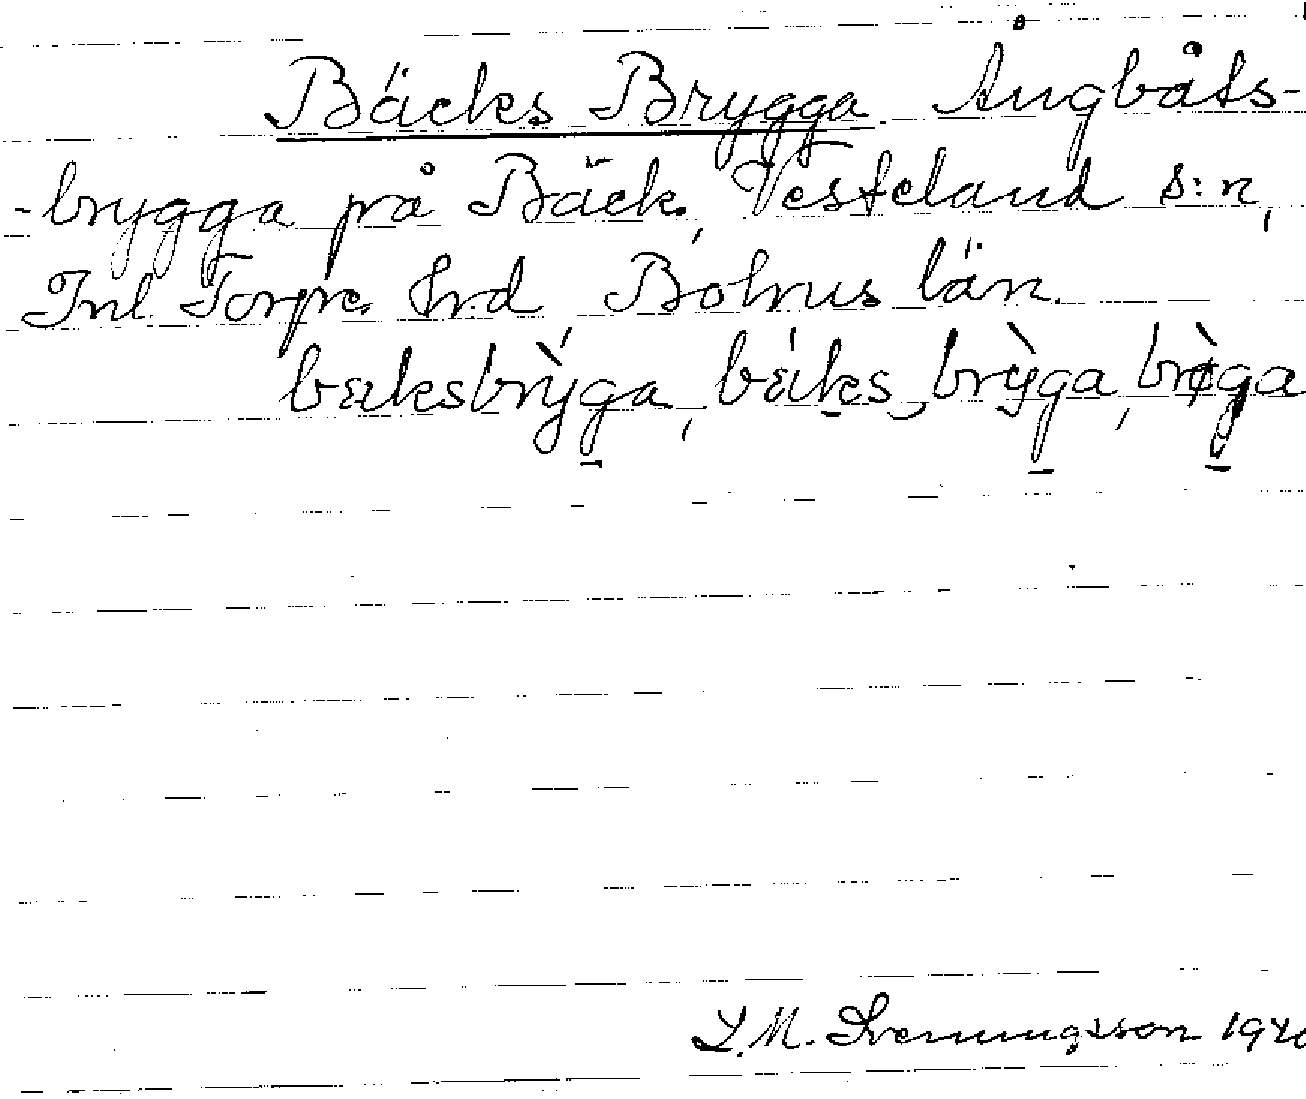 Bäcks Brygga. Ångbåts-
-brygga på Bäck, Vesteland s:n,
Inl Torpe Hrd, Bohus län.
bæksbrỳga, bæ'ks brỳga, brø̀ga
L.M. Svenungsson 1940